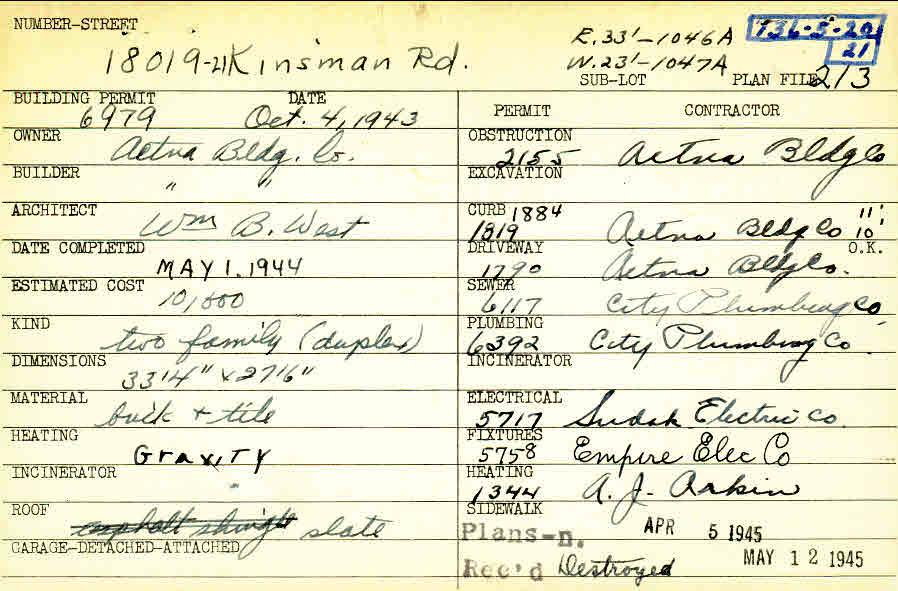 NUMBER-STREET
18019-21 Kinsman Rd.
E.33'-1046A
W.23'-1047A
736-5-20
21
SUB-LOT PLAN FILE 213
BUILDING PERMIT DATE
6979 Oct. 4, 1943
OWNER
Aetna Bldg. Co.
BUILDER
" "
ARCHITECT
Wm B. West
DATE COMPLETED
MAY 1, 1944
ESTIMATED COST
10,000
KIND
two family (duplex)
DIMENSIONS
33'4" x 27'6"
MATERIAL
brick + tile
HEATING
Gravity
INCINERATOR
ROOF
asphalt shingle slate
GARAGE-DETACHED-ATTACHED
PERMIT CONTRACTOR
OBSTRUCTION
2155 Aetna Bldg Co
EXCAVATION
CURB 1884 11'
1819 Aetna Bldg Co 10'
DRIVEWAY O.K.
1790 Aetna Bldg Co.
SEWER
6117 City Plumbing Co
PLUMBING
6392 City Plumbing Co.
INCINERATOR
ELECTRICAL
5717 Sudak Electric Co.
FIXTURES
5758 Empire Elec Co
HEATING
1344 A. J. Arkin
SIDEWALK
Plans-n. APR 5 1945
Rec'd Destroyed MAY 12 1945